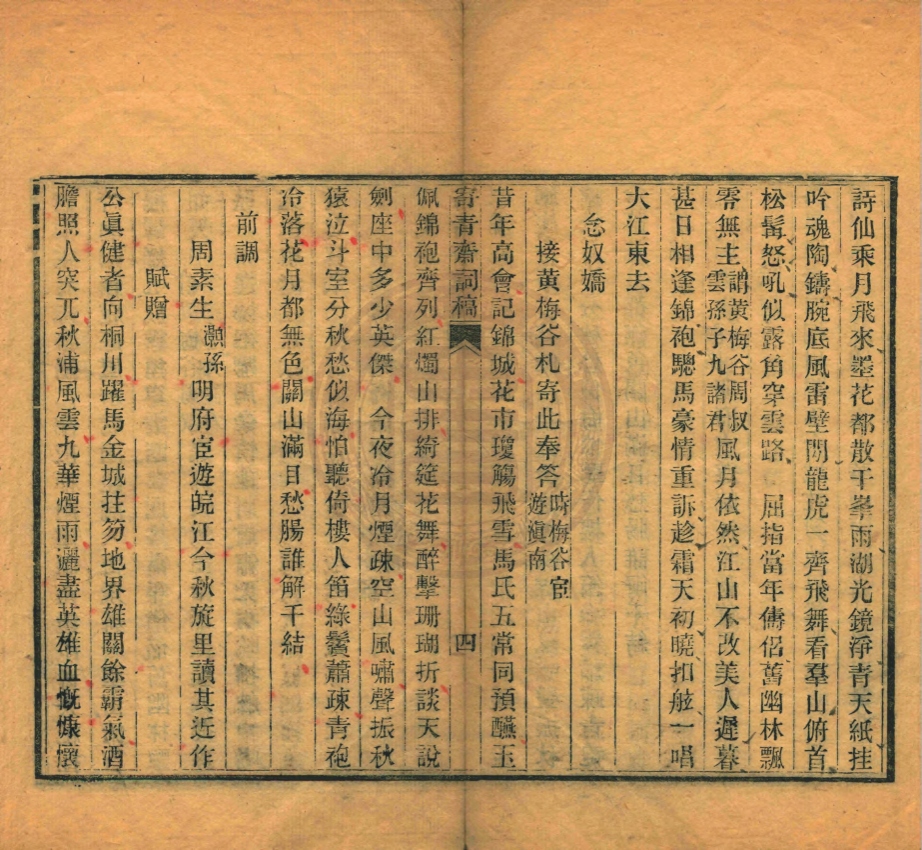 詩仙乘月飛來墨花都散千峯雨湖光鏡淨青天紙挂
吟魂陶鑄腕底風雷壁閒龍虎一齊飛舞看羣山俯首
松髯怒吼似露角穿雲路 屈指當年儔侶舊幽林飄
零無主謂黃梅谷周叔雲孫子九諸君風月依然江山不改美人遲暮
甚日相逢錦袍驄馬豪情重訴趁霜天初曉扣舷一唱
大江東去
念奴嬌
接黃梅谷札寄此奉答時梅谷宦遊滇南
昔年高會記錦城花市瓊觴飛雪馬氏五常同預醼玉
寄青齋詞稿 四
佩錦袍齊列紅燭山排綺筵花舞醉擊珊瑚折談天說
劍座中多少英傑 今夜冷月煙疎空山風嘯聲振秋
猿泣斗室分秋愁似海怕聽倚樓人笛綠鬢蕭疎青袍
冷落花月都無色關山滿目愁腸誰解千結
前調
周素生灝孫明府宦遊皖江今秋旋里讀其近作
賦贈
公眞健者向桐川躍馬金城拄笏地界雄關餘霸氣酒
膽照人突兀秋浦風雲九華煙雨灑盡英雄血慨慷懷